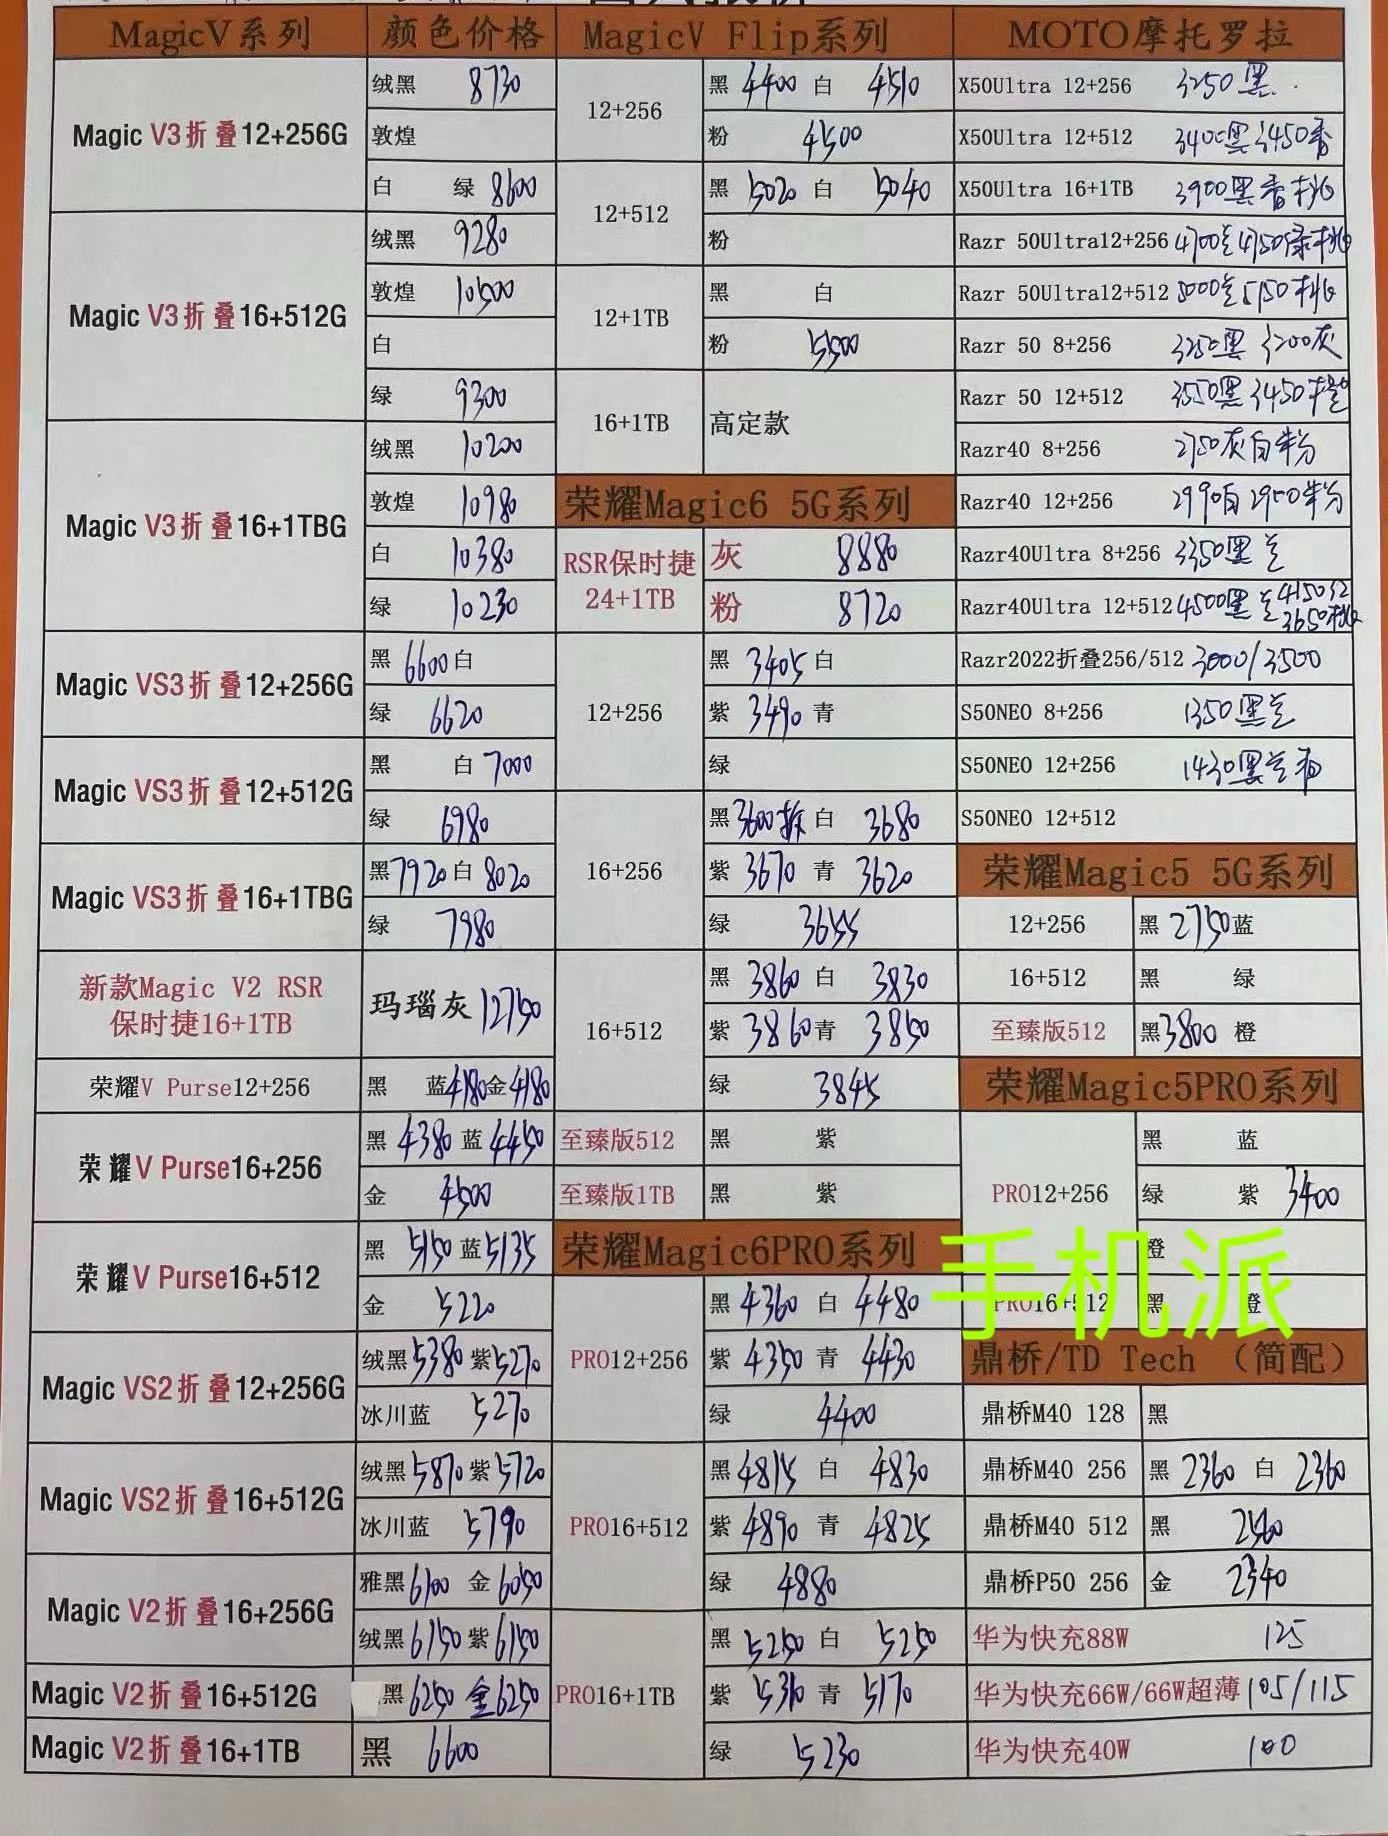 MagicV系列 颜色价格 MagicV Flip系列 MOTO摩托罗拉
Magic V3折叠12+256G
绒黑 8730
敦煌
白 绿 8600
Magic V3折叠16+512G
绒黑 9280
敦煌 10500
白
绿 9300
Magic V3折叠16+1TBG
绒黑 10200
敦煌 10980
白 10380
绿 10230
Magic VS3折叠12+256G
黑 6600 白
绿 6620
Magic VS3折叠12+512G
黑 白 7000
绿 6980
Magic VS3折叠16+1TBG
黑 7920 白 8020
绿 7980
新款Magic V2 RSR
保时捷16+1TB
玛瑙灰 12750
荣耀V Purse12+256
黑 蓝4180金4180
荣耀V Purse16+256
黑 4380 蓝 4450
金 4500
荣耀V Purse16+512
黑 5150 蓝5135
金 5220
Magic VS2折叠12+256G
绒黑5380 紫5270
冰川蓝 5270
Magic VS2折叠16+512G
绒黑5870紫5720
冰川蓝 5790
Magic V2折叠16+256G
雅黑6100 金 6050
绒黑 6150 紫 6150
Magic V2折叠16+512G
黑 6250 金6250
Magic V2折叠16+1TB
黑 6600
12+256
黑 4400 白 4510
粉 4500
12+512
黑 5020 白 5040
粉
12+1TB
黑 白
粉 5500
16+1TB
高定款
荣耀Magic6 5G系列
RSR保时捷
24+1TB
灰 8880
粉 8720
12+256
黑 3405 白
紫 3490 青
绿
16+256
黑3600拆 白 3680
紫 3670 青 3620
绿 3655
16+512
黑 3860 白 3830
紫 3860 青 3850
绿 3845
至臻版512
黑 紫
至臻版1TB
黑 紫
荣耀Magic6PRO系列
PRO12+256
黑 4360 白 4480
紫 4350 青 4430
绿 4400
PRO16+512
黑 4815 白 4830
紫 4890 青 4825
绿 4880
PRO16+1TB
黑 5250 白 5250
紫 5310 青 5170
绿 5230
X50Ultra 12+256 3250黑
X50Ultra 12+512 3400黑 3450香
X50Ultra 16+1TB 3900黑香桃
Razr 50Ultra12+256 4700兰4750绿桃
Razr 50Ultra12+512 5000兰5150桃
Razr 50 8+256 3250黑 3200灰
Razr 50 12+512 3550黑 3450橙
Razr40 8+256 2750灰白粉
Razr40 12+256 2990白 2950粉
Razr40Ultra 8+256 3350黑兰
Razr40Ultra 12+512 4500黑兰4150红
3650桃
Razr2022折叠256/512 3000/3500
S50NEO 8+256 1350黑兰
S50NEO 12+256 1430黑兰
S50NEO 12+512
荣耀Magic5 5G系列
12+256 黑 2750蓝
16+512 黑 绿
至臻版512 黑3800 橙
荣耀Magic5PRO系列
PRO12+256
黑 蓝
绿 紫 3400
橙
PRO16+512 黑 橙
手机派
鼎桥/TD Tech （简配）
鼎桥M40 128 黑
鼎桥M40 256 黑 2360 白 2360
鼎桥M40 512 黑 2560
鼎桥P50 256 金 2340
华为快充88W 125
华为快充66W/66W超薄 105/115
华为快充40W 100